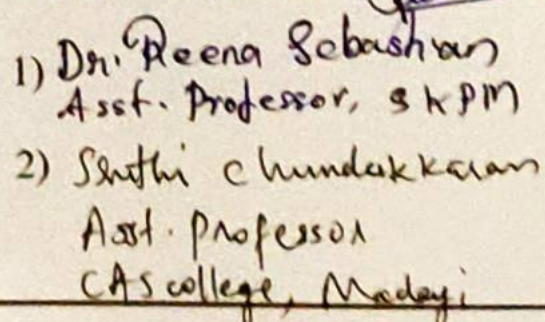 1) Dr. Reena Sebastian
Asst. Professor, SKPM
2) Sruthi Chundakkaran
Asst. Professor
CAS college, Madayi